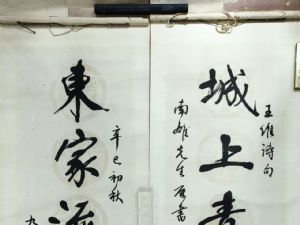 城上青
王维诗句
南雄先生属书
東家流
辛巳初秋
九